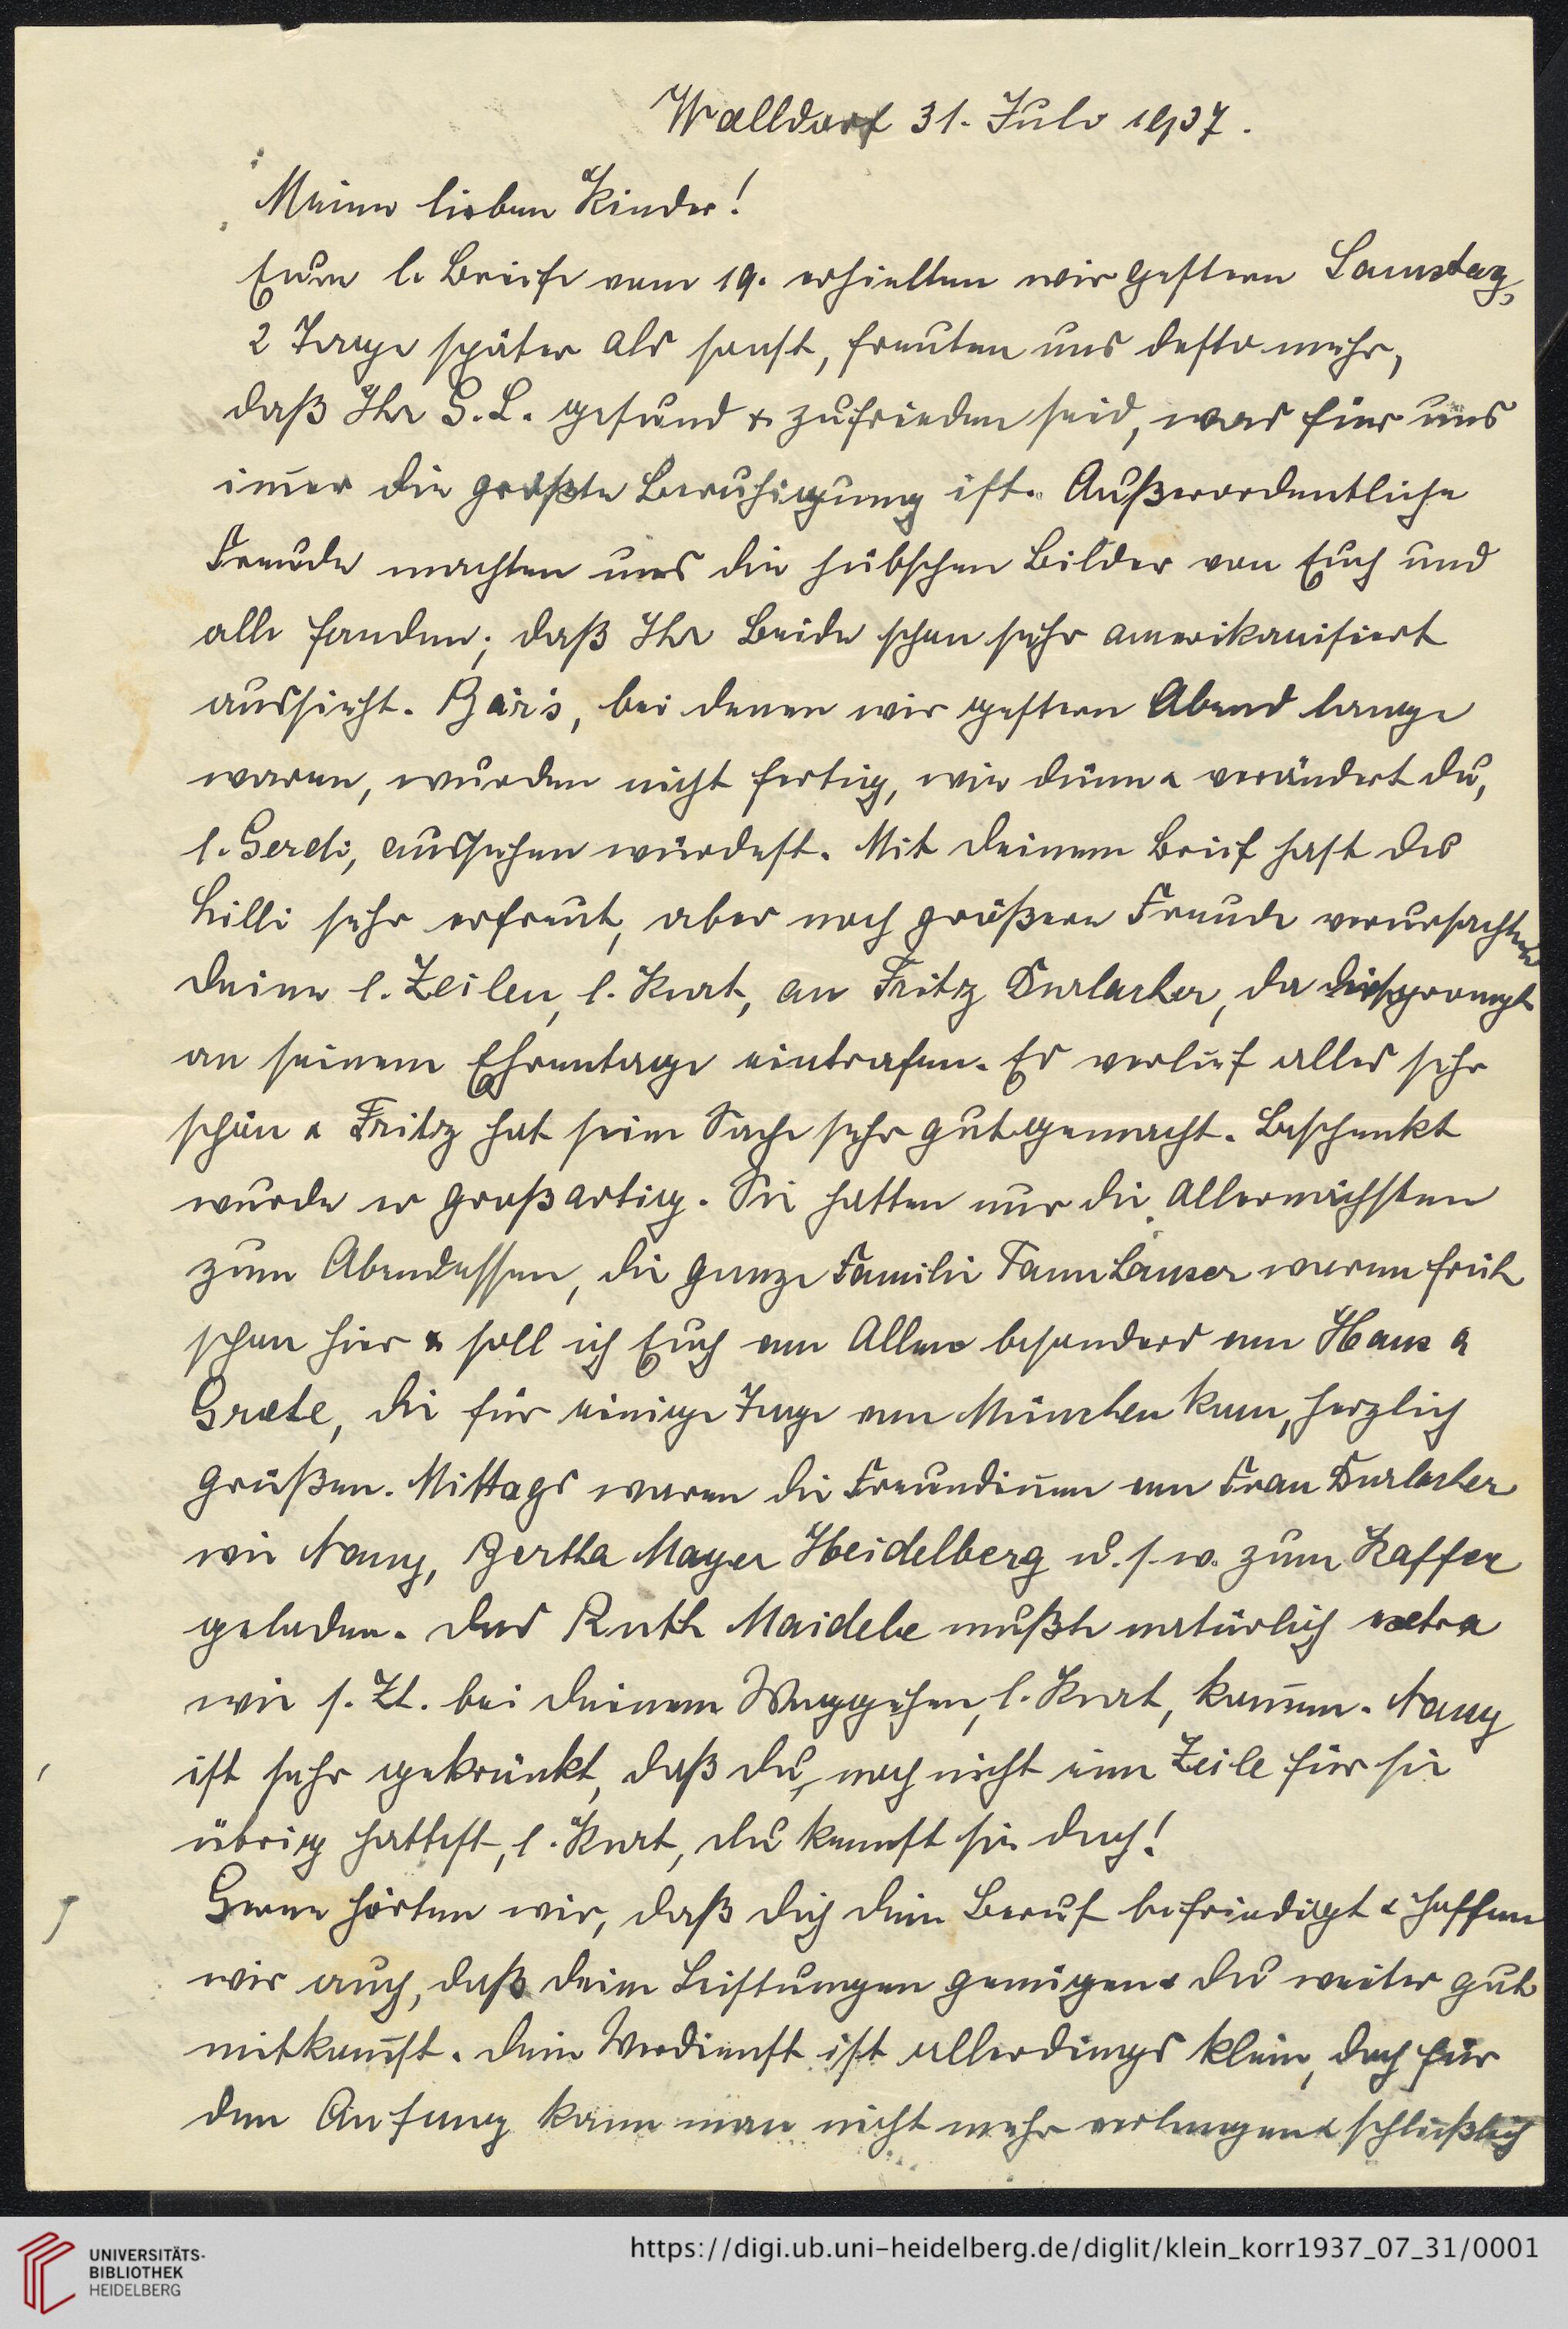 Walldorf 31. Juli 1937.
Meine lieben Kinder!
Eure l. Briefe vom 19. erhielten wir gestern Samstag,
2 Tage später als sonst, freuten uns desto mehr,
daß Ihr G. L. gesund & zufrieden seid, was für uns
im̄er die größte Beruhigung ist. Außerordentliche
Freude machten uns die hübschen Bilder von Euch und
alle fanden, daß Ihr Beide schon sehr amerikanisiert
aussieht. Bär's, bei denen wir gestern Abend lange
waren, wurden nicht fertig, wie dünn & verändert du,
l. Gerdi, aussehen würdest. Mit deinem Brief hast du
Lilli sehr erfreut, aber noch größere Freude verursachten
deine l. Zeilen, l. Kurt, an Fritz Durlacher, da prompt
an seinem Ehrentage eintrafen. Es verlief alles sehr
schön & Fritz hat seine Sache sehr gut gemacht. Beschenkt
wurde er großartig. Sie hatten nur die Allernächsten
zum Abendessen, die ganze Familie waren früh
schon hier & soll ich Euch von Allen besonders von Hans &
Grete, die für einige Tage von München kam, herzlich
grüßen. Mittags waren die Freundin̄en von Frau Durlacher
wie Nany, Bertha Mayer Heidelberg u. s. w. zum Kaffee
geladen. Das Ruth Maidele mußte natürlich extra
wie s. Zt. bei deinem Weggehen, l. Kurt, kom̄en. Nany
ist sehr gekränkt, daß du noch nicht eine Zeile für sie
übrig hattest, l. Kurt, du kennst sie doch!
Gerne hörten wir, daß dich dein Beruf befriedigt & hoffen
wir auch, daß deine Leistungen genügen & du weiter gut
mitkom̄st. Dein Verdienst ist allerdings klein, doch für
den Anfang kann man nicht mehr verlangen & schließlich
UNIVERSITÄTS-
BIBLIOTHEK
HEIDELBERG
https://digi.ub.uni-heidelberg.de/diglit/klein_korr1937_07_31/0001